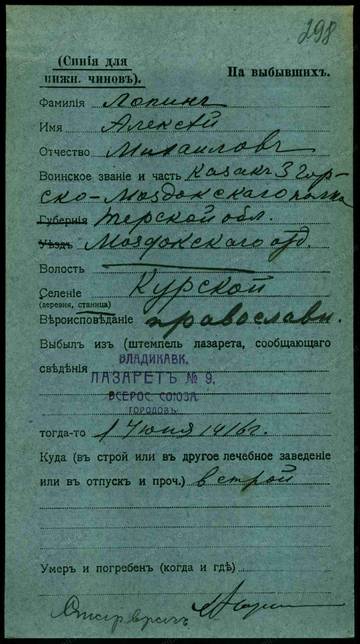 298
(Синія для
нижн. чиновъ).
На выбывшихъ.
Фамилія Лопинъ
Имя Алексѣй
Отчество Михаиловъ
Воинское званіе и часть Казакъ 3 Гор-
ско-Моздокскаго полка
Губернія Терской обл.
Уѣздъ Моздокскаго отд.
Волость
Селеніе Курской
(деревня, станица)
Вѣроисповѣданіе православн.
Выбылъ изъ (штемпель лазарета, сообщающаго
свѣдѣнія)
ВЛАДИКАВК.
ЛАЗАРЕТЪ № 9.
ВСЕРОС. СОЮЗА
ГОРОДОВЪ
тогда-то 1 Июня 1916г.
Куда (въ строй или въ другое лечебное заведеніе
или въ отпускъ и проч.) в строй
Умеръ и погребенъ (когда и гдѣ)
Стар врачъ